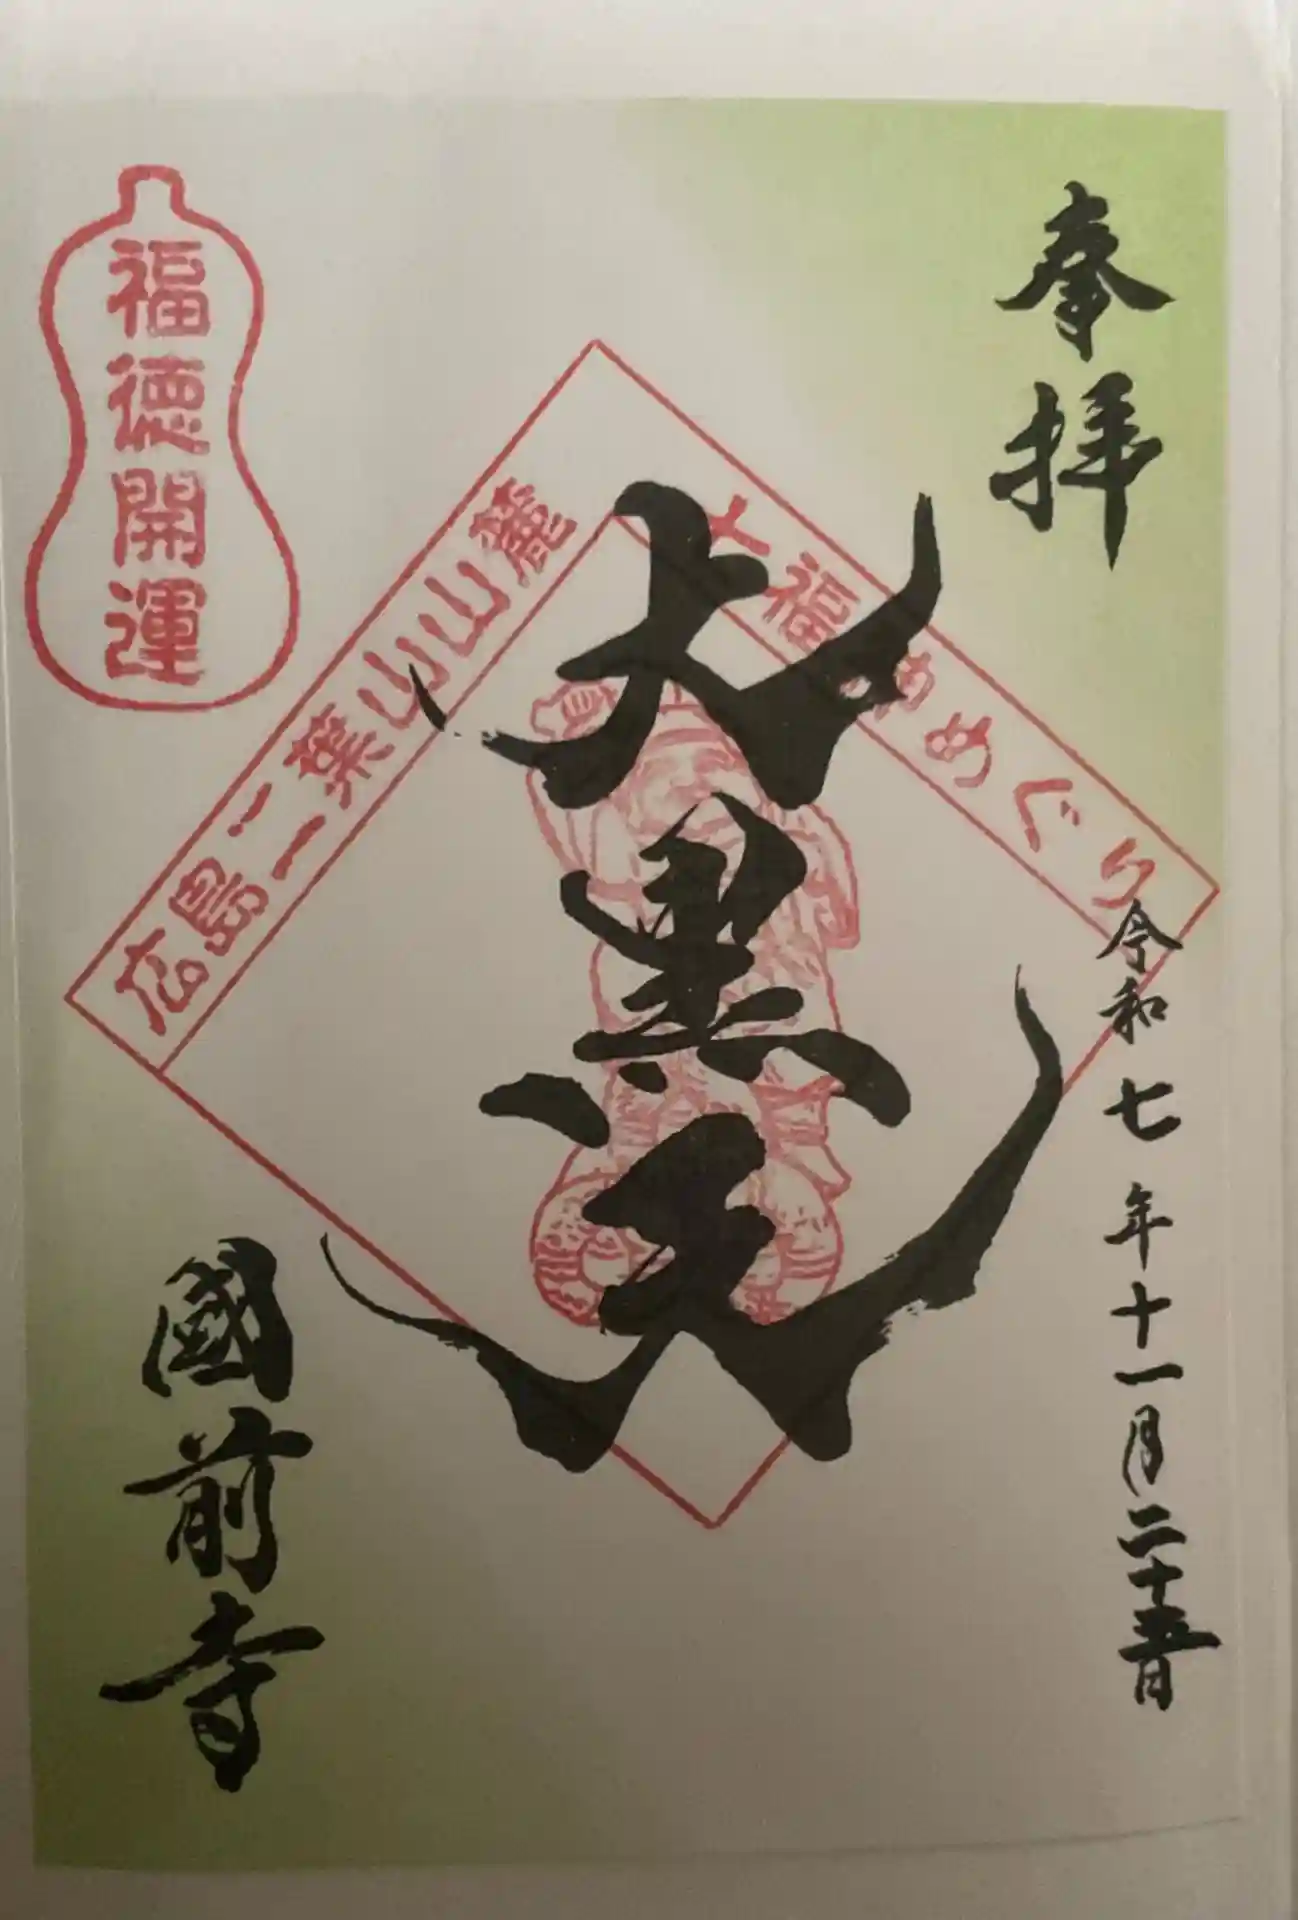 奉拝
令和七年十一月二十五日
七福神めぐり
大黒天
広島二葉山山麓
福徳開運
國前寺